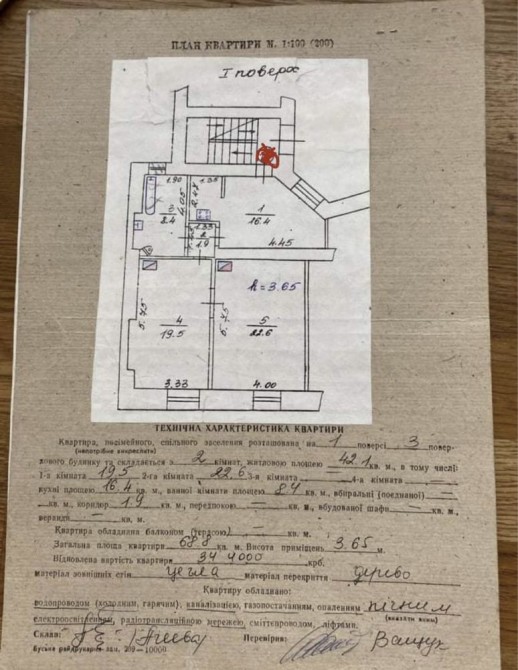 ПЛАН КВАРТИРИ М. 1:100 (200)
I поверх
1.90
1.35
4.05
2.47
3
8.4
1
16.4
1.35
2
1.9
4.45
h=3.65
5.75
4
19.5
5.75
5
22.6
3.33
4.00
ТЕХНІЧНА ХАРАКТЕРИСТИКА КВАРТИРИ
Квартира, посімейного, спільного заселення розташована на 1 поверсі 3 повер-
(непотрібне викреслити)
хового будинку та складається з 2 кімнат, житловою площею 42.1 кв. м., в тому числі:
1-а кімната 19.5 2-га кімната 22.6 3-я кімната — 4-а кімната —
кухні площею 16.4 кв. м., ванної кімнати площею 8.4 кв. м., вбиральні (поєднаної) —
кв. м., коридор 1.9 кв. м., передпокою — кв. м., вбудованої шафи — кв. м.,
веранди кв. м.
Квартира обладнана балконом (терасою) — кв. м.
Загальна площа квартири 68.8 кв. м. Висота приміщень 3.65 м.
Відновлена вартість квартири 344000 крб.
матеріал зовнішніх стін цегла матеріал перекриття дерево
Квартиру обладнано:
водопроводом (холодним, гарячим), каналізацією, газопостачанням, опаленням пічним
(вказати яким)
електроосвітленням, радіотрансляційною мережею, сміттєпроводом, ліфтами.
Склав:
Перевірив: Ващук